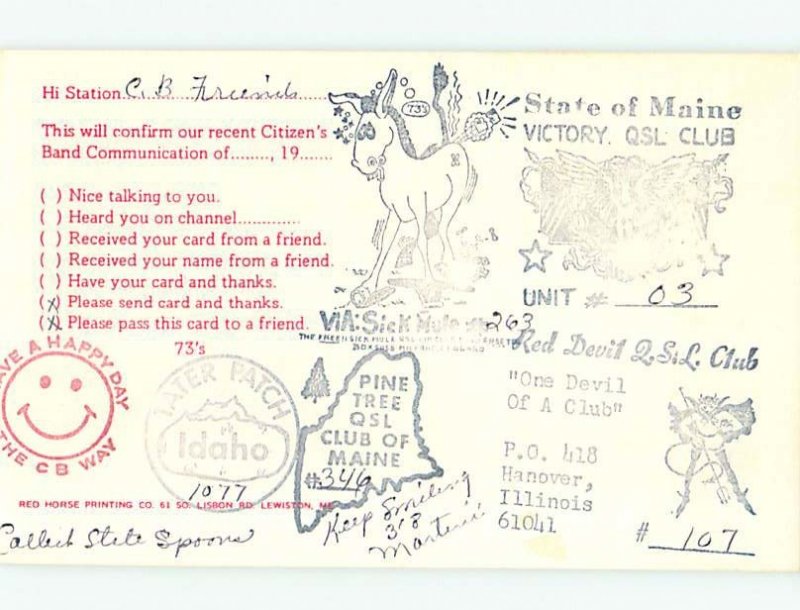 Hi Station C. B Friends
This will confirm our recent Citizen's
Band Communication of........, 19.......
( ) Nice talking to you.
( ) Heard you on channel.............
( ) Received your card from a friend.
( ) Received your name from a friend.
( ) Have your card and thanks.
(x) Please send card and thanks.
(x) Please pass this card to a friend.
73's
HAVE A HAPPY DAY
THE CB WAY
LATER PATCH
Idaho
1077
RED HORSE PRINTING CO. 61 SO. LISBON RD. LEWISTON, ME.
Collect State Spoons
73's
ViA: Sick Mule 263
PINE
TREE
QSL
CLUB OF
MAINE
#346
Keep Smiling
318
State of Maine
VICTORY. QSL CLUB
UNIT # 03
Red Devil Q.S.L. Club
"One Devil
Of A Club"
P.O. 418
Hanover,
Illinois
61041
# 107